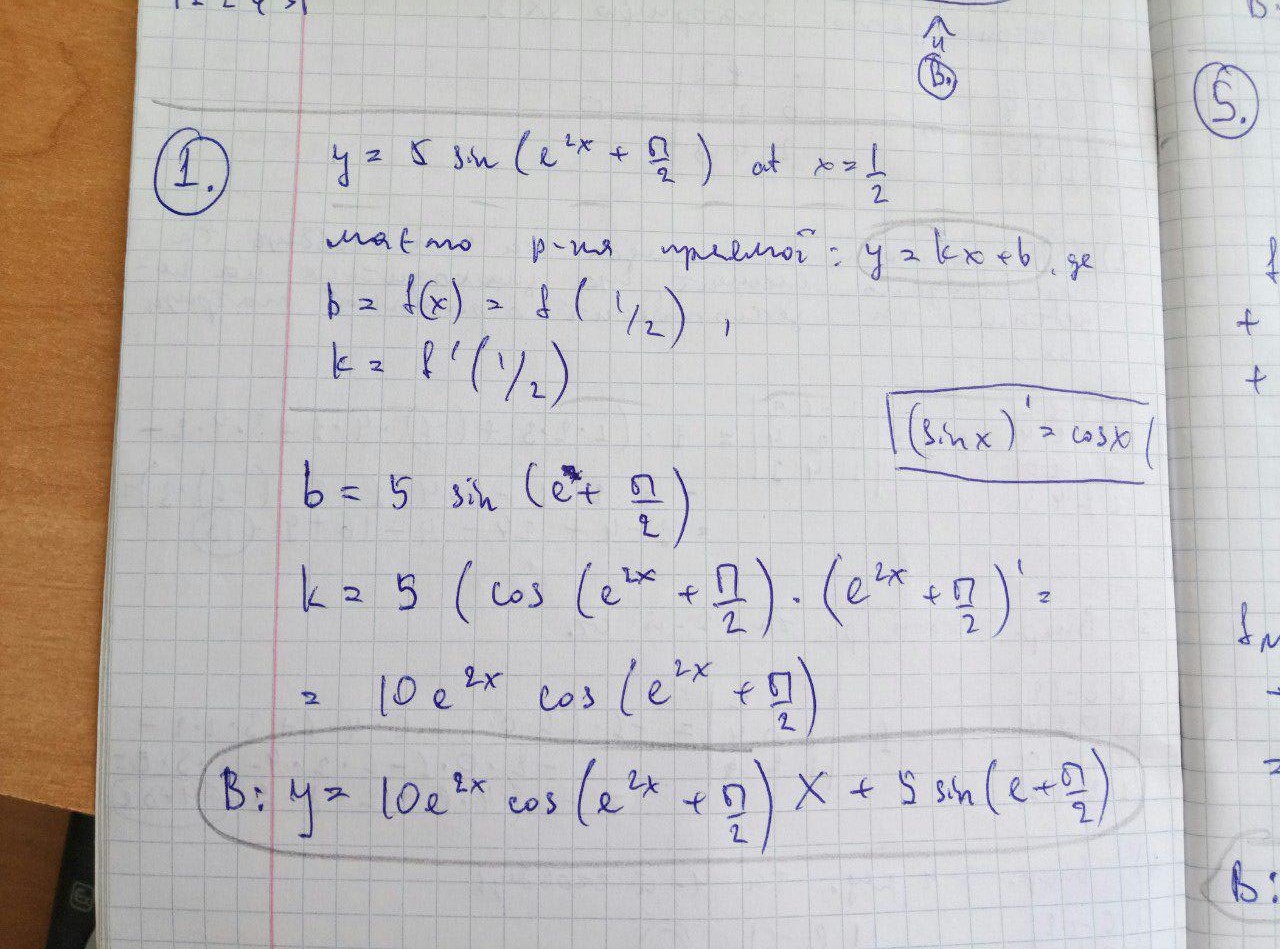 B.
1. y = 5 sin (e^{2x} + π/2) at x = 1/2
р-ня прямої: y = kx + b, де
b = f(x) = f (1/2),
k = f'(1/2)
(sin x)' = cos x
b = 5 sin (e + π/2)
k = 5 (cos (e^{2x} + π/2) · (e^{2x} + π/2)' =
= 10e^{2x} cos (e^{2x} + π/2)
В: y = 10e^{2x} cos (e^{2x} + π/2) X + 5 sin (e + π/2)
5.
f
+
+
=
В: